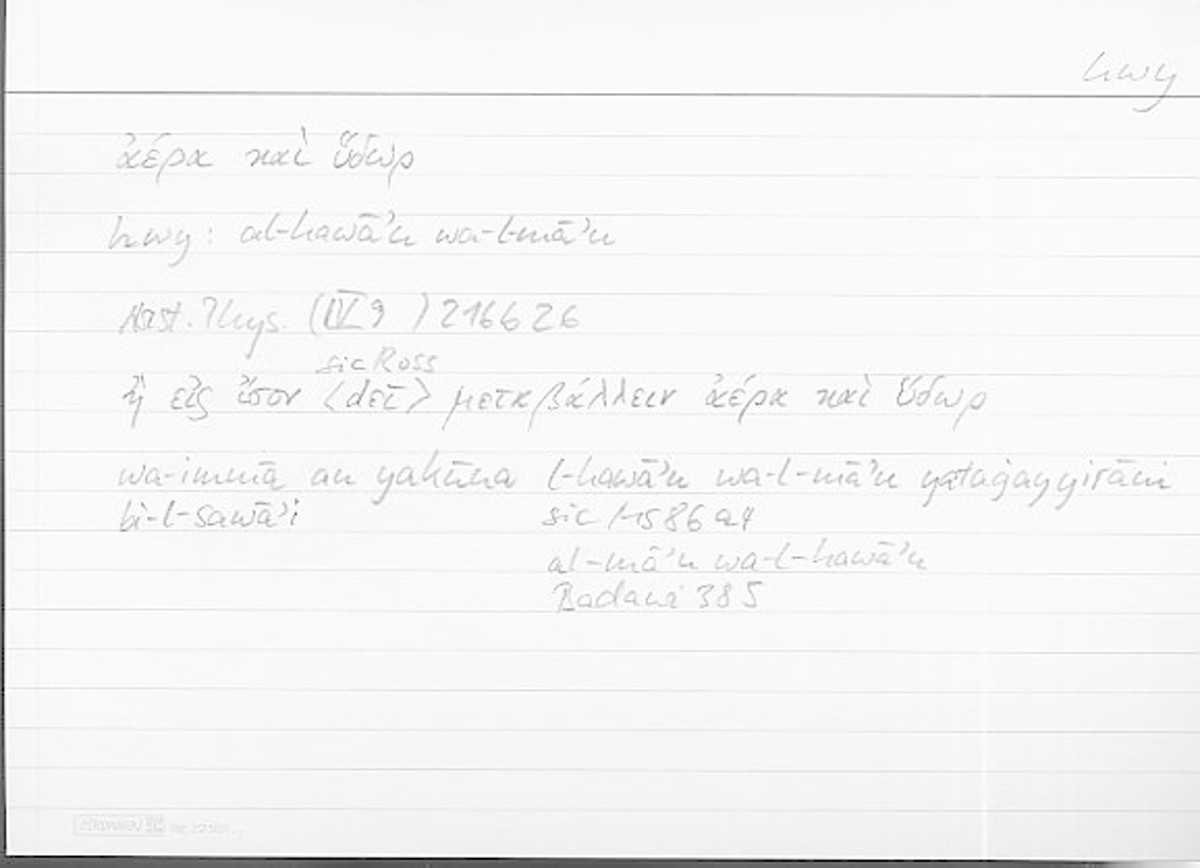 hwy
ἀέρα καὶ ὕδωρ
hwy: al-hawāʾu wa-l-māʾu
Arist. Phys. (IV 9 ) 216b26
sic Ross
ἢ εἰς ἴσον <δεῖ> μεταβάλλειν ἀέρα καὶ ὕδωρ
wa-immā an yakūna l-hawāʾu wa-l-māʾu yataġayyirāni
bi-l-sawāʾi sic Hs 86 a4
al-māʾu wa-l-hawāʾu
Badawi 385